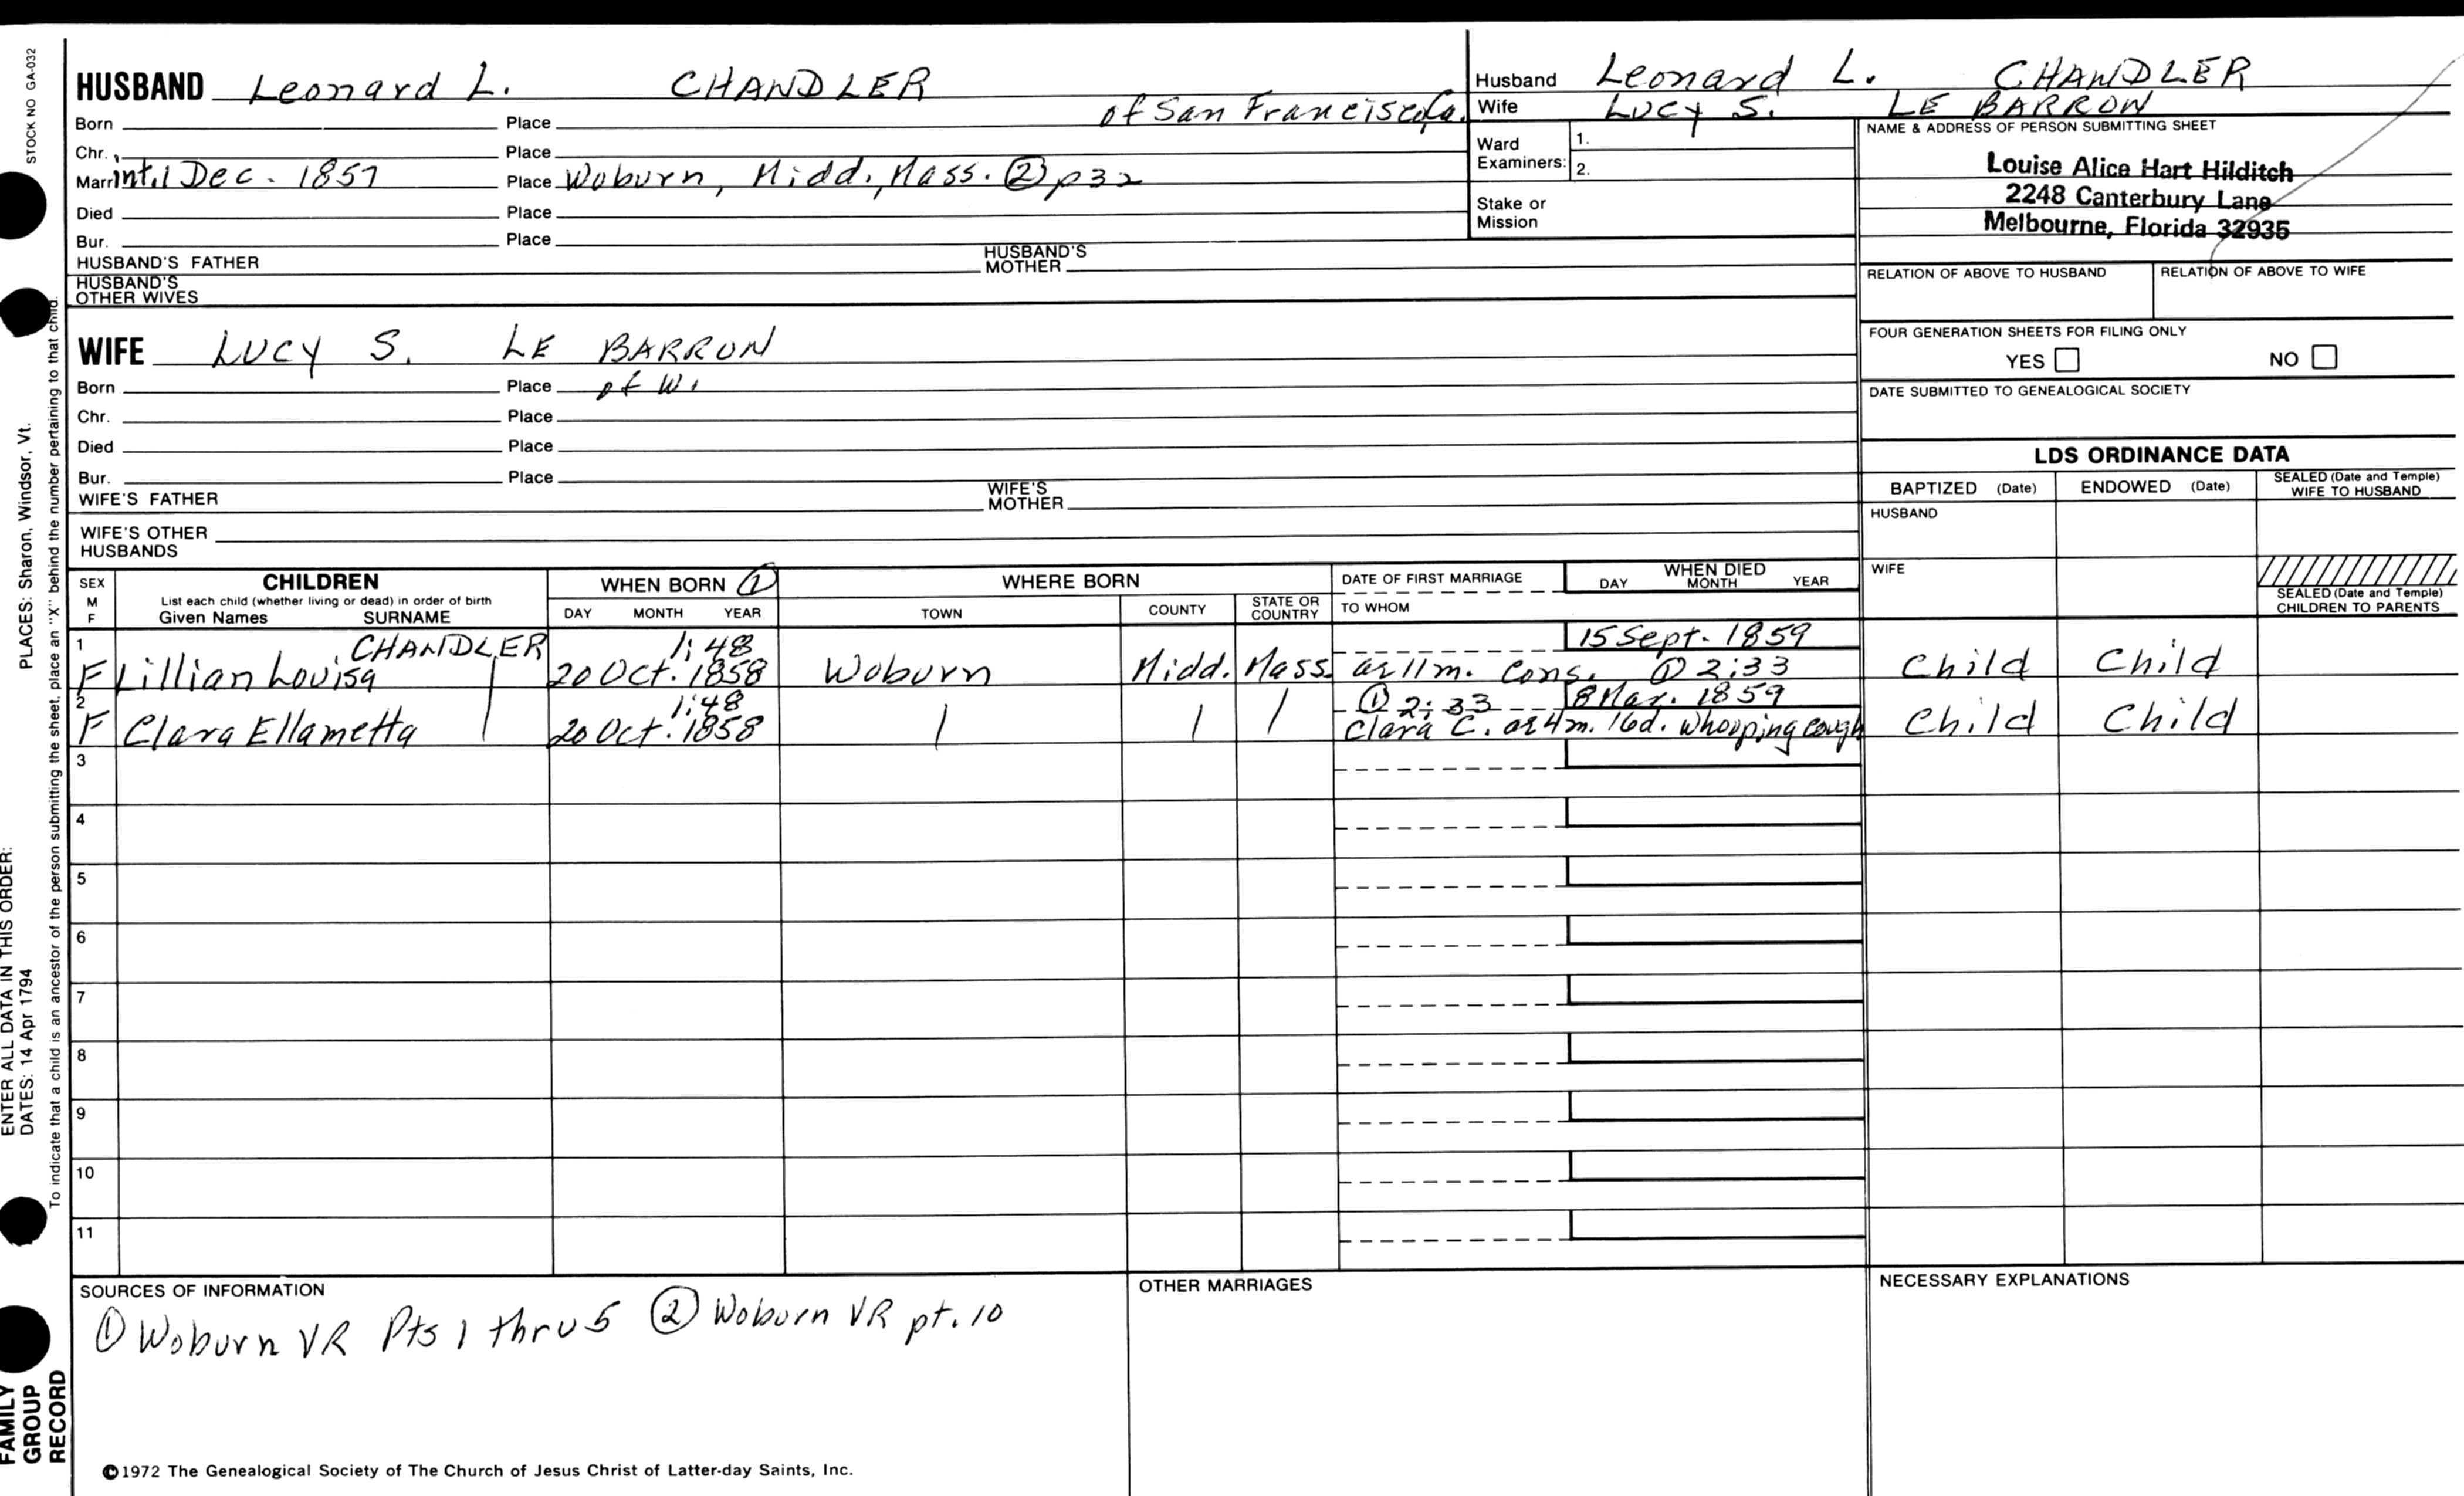 STOCK NO GA-032
PLACES: Sharon, Windsor, Vt.
ENTER ALL DATA IN THIS ORDER:
DATES: 14 Apr 1794
To indicate that a child is an ancestor of the person submitting the sheet, place an "X" behind the number pertaining to that child.
FAMILY
GROUP
RECORD
HUSBAND Leonard L. CHANDLER
Born Place of San Francisco Ca.
Chr. Place
Marr int. 1 Dec. 1857 Place Woburn, Midd., Mass. ② p32
Died Place
Bur. Place
HUSBAND'S FATHER HUSBAND'S MOTHER
HUSBAND'S
OTHER WIVES
WIFE LUCY S. LE BARRON
Born Place of W.
Chr. Place
Died Place
Bur. Place
WIFE'S FATHER WIFE'S MOTHER
WIFE'S OTHER
HUSBANDS
Husband Leonard L. CHANDLER
Wife LUCY S. LE BARRON
Ward 1.
Examiners: 2.
Stake or
Mission
NAME & ADDRESS OF PERSON SUBMITTING SHEET
Louise Alice Hart Hilditch
2248 Canterbury Lane
Melbourne, Florida 32935
RELATION OF ABOVE TO HUSBAND RELATION OF ABOVE TO WIFE
FOUR GENERATION SHEETS FOR FILING ONLY
YES NO
DATE SUBMITTED TO GENEALOGICAL SOCIETY
LDS ORDINANCE DATA
BAPTIZED (Date) ENDOWED (Date) SEALED (Date and Temple)
WIFE TO HUSBAND
HUSBAND
WIFE
SEALED (Date and Temple)
CHILDREN TO PARENTS
SEX CHILDREN WHEN BORN ① WHERE BORN DATE OF FIRST MARRIAGE WHEN DIED
M List each child (whether living or dead) in order of birth DAY MONTH YEAR
F Given Names SURNAME DAY MONTH YEAR TOWN COUNTY STATE OR COUNTRY TO WHOM
1 CHANDLER 1:48 15 Sept. 1859
F Lillian Louisa 20 Oct. 1858 Woburn Midd. Mass. ae 11m. Cons. ① 2:33 Child Child
2 1:48 ① 2:33 8 Mar. 1859
F Clara Ellametta 20 Oct. 1858 Clara C. ae 4m. 16d. whooping cough Child Child
3
4
5
6
7
8
9
10
11
SOURCES OF INFORMATION
① Woburn VR Pts 1 thru 5 ② Woburn VR pt. 10
OTHER MARRIAGES
NECESSARY EXPLANATIONS
©1972 The Genealogical Society of The Church of Jesus Christ of Latter-day Saints, Inc.